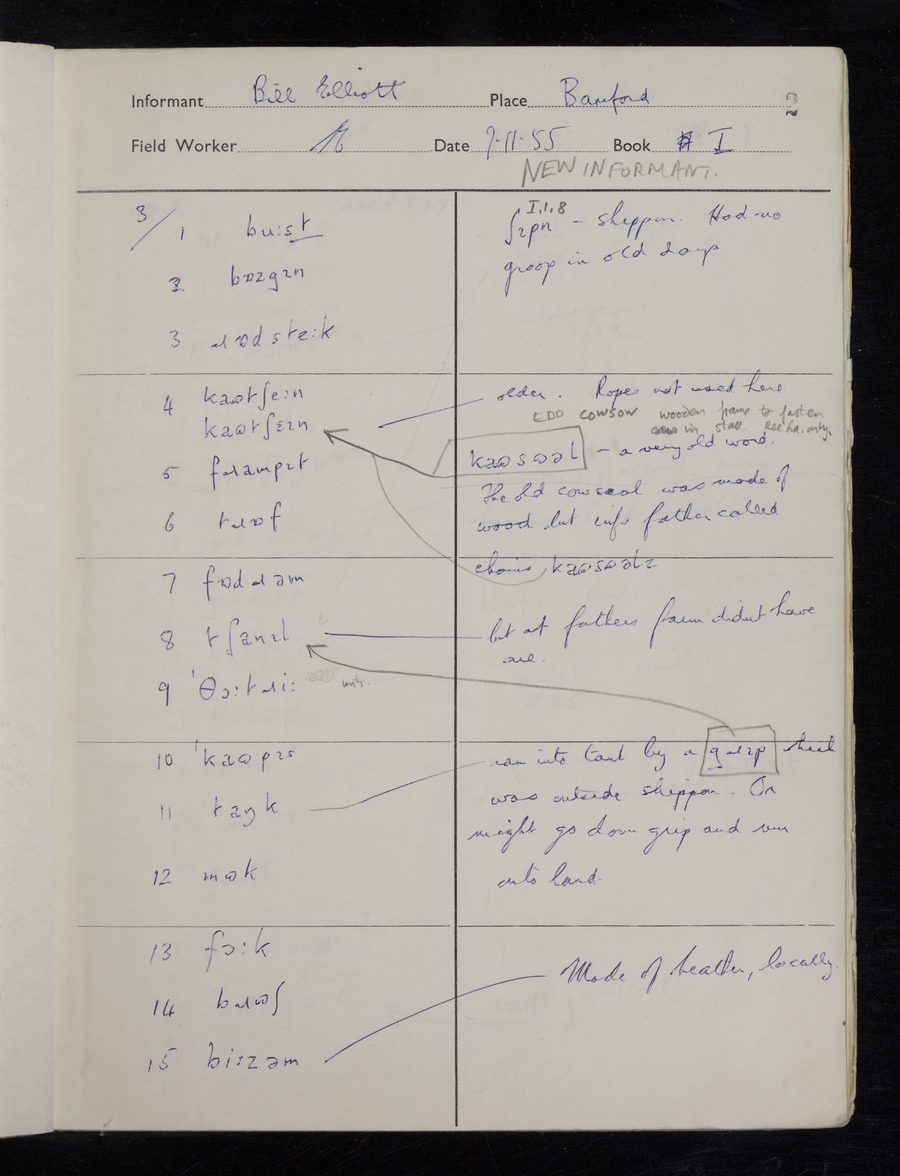 Informant Bill Elliott Place Bamford
Field Worker Date 7·11·55 Book I
NEW INFORMANT.
3/1 buːst
2 bɒzgɪn
3 ɹɒdsteːk
4 kaʊtʃeːn
kaʊtʃɛɪn
5 fɹampɪt
6 tɹʊf
7 fɒdɹəm
8 tʃanɪl
9 ˈθəːtɹiː
10 ˈkaʊpɪs
11 taŋk
12 mʊk
13 fɔːk
14 bɹʊʃ
15 biːzəm
I,1,8
ʃɪpn – sheppon. Had no
groop in old days
older. Ropes not used here
EDD. COWSOW wooden frame to fasten
cows in stall.
kaʊsʊəl – a very old word.
The old cowsoal was made of
wood but inf's father called
chains kaʊsʊəlz
but at fathers farm didnt have
one.
ran into tank by a gɹɪp that
was outside sheppon. Or
might go down grip and run
onto land.
Made of heather, locally.